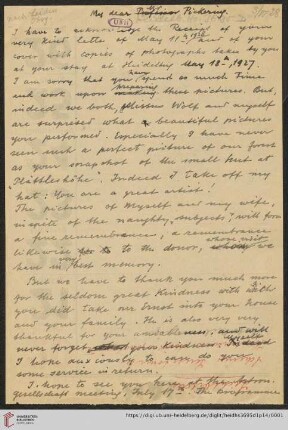 My dear Professor Pickering.
I have to acknowledge the Receipt of your
very kind letter of May 31st and of your
cover with copies of photographs taken by you
at your stay at Heidelberg May 18th, 1927.
I am sorry that you have spend so much Time
and work upon preparing these pictures. But,
indeed we both, Mistress Wolf and myself
are surprised what beautiful pictures
you performed. Especially I have never
seen such a perfect picture of our forest
as your snapshot of the small hut at
"Blättleshöhe". Indeed I take off my
hat: You are a great artist!
The pictures of Myself and my wife,
in spite of the naughty "subjects", will form
a fine remembrance, a remembrance
likewise to the donor, whose visit we
have in very best memory.
But we have to thank you much more
for the seldom great Kindness with which
you did take me Guest into your house
and your family. I is also very very
thankful for your amiableness, and will
never forget your Kindness.
I hope
some service in return.
I hope to see you here, at the Astron.
gesellschaft meeting, July
UNIVERSITÄTS-
BIBLIOTHEK
HEIDELBERG
https://digi.ub.uni-heidelberg.de/diglit/heidhs3695d1p14/0001